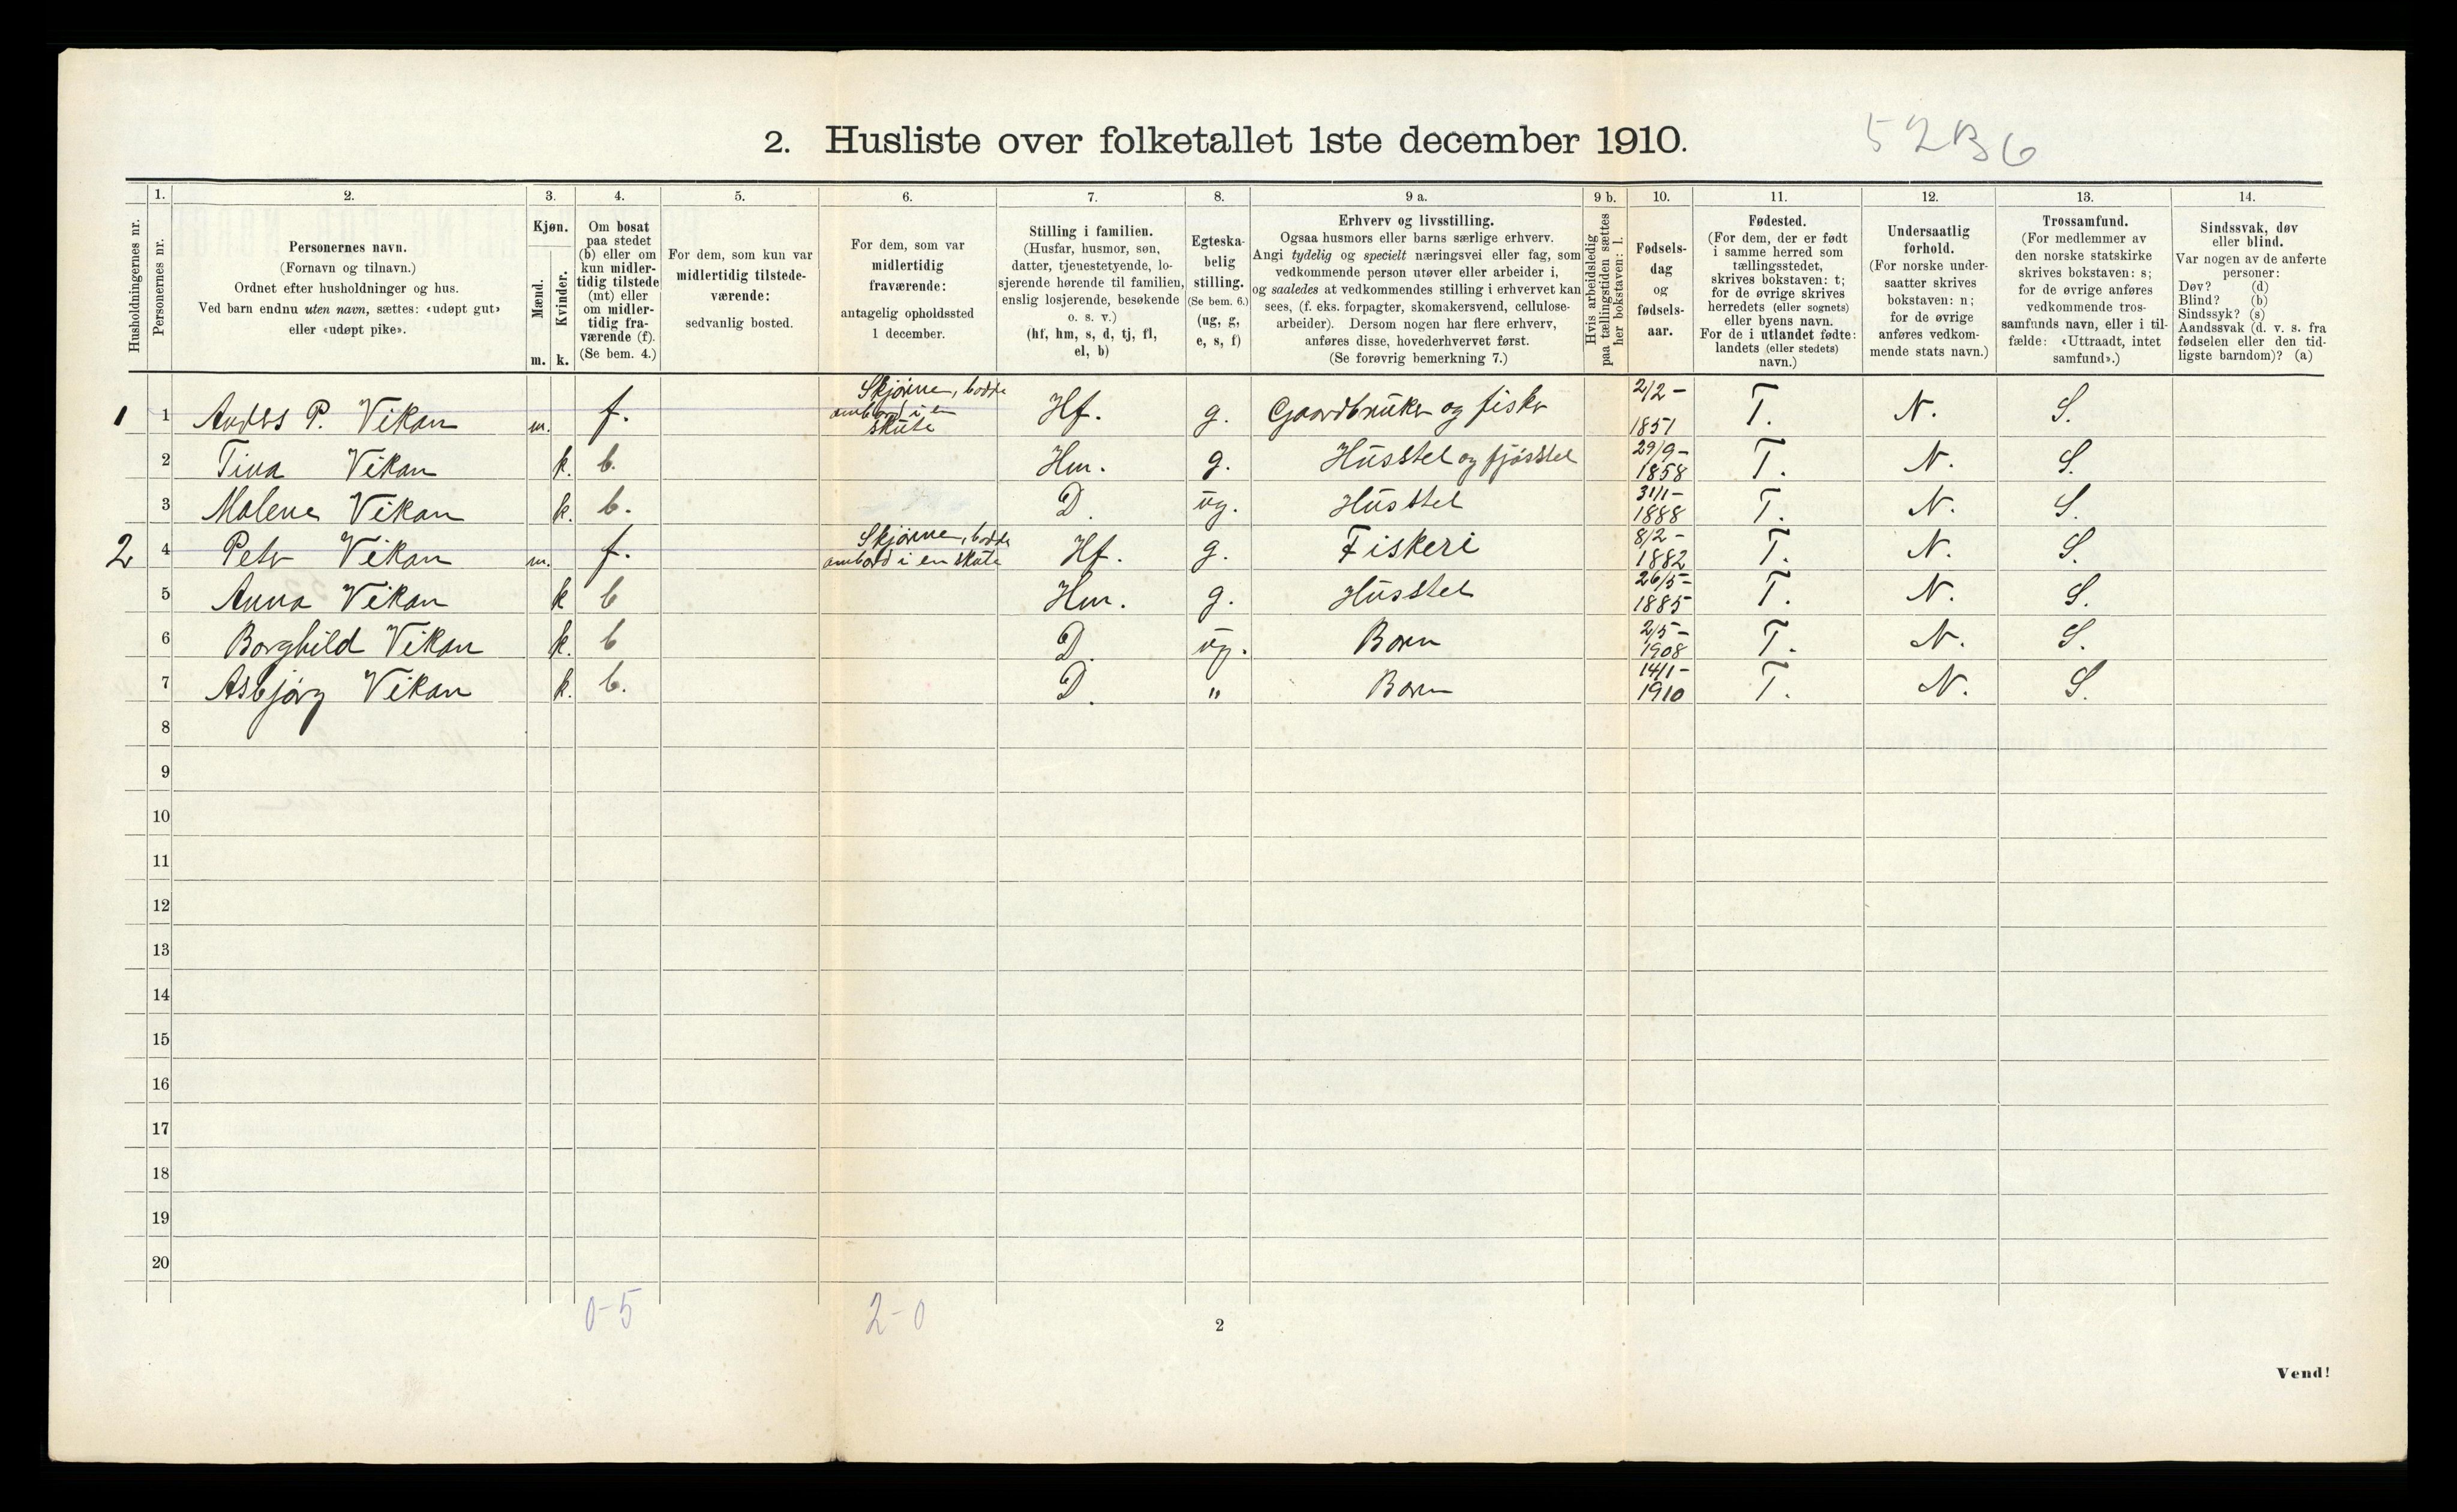 2. Husliste over folketallet 1ste december 1910.
52B6
Husholdningernes nr.
1.
Personernes nr.
2.
Personernes navn.
(Fornavn og tilnavn.)
Ordnet efter husholdninger og hus.
Ved barn endnu uten navn, sættes: «udøpt gut»
eller «udøpt pike».
3.
Kjøn.
Mænd.
Kvinder.
m. k.
4.
Om bosat
paa stedet
(b) eller om
kun midler-
tidig tilstede
(mt) eller
om midler-
tidig fra-
værende (f).
(Se bem. 4.)
5.
For dem, som kun var
midlertidig tilstede-
værende:
sedvanlig bosted.
6.
For dem, som var
midlertidig
fraværende:
antagelig opholdssted
1 december.
7.
Stilling i familien.
(Husfar, husmor, søn,
datter, tjenestetyende, lo-
sjerende hørende til familien,
enslig losjerende, besøkende
o. s. v.)
(hf, hm, s, d, tj, fl,
el, b)
8.
Egteska-
belig
stilling.
(Se bem. 6.)
(ug, g,
e, s, f)
9 a.
Erhverv og livsstilling.
Ogsaa husmors eller barns særlige erhverv.
Angi tydelig og specielt næringsvei eller fag, som
vedkommende person utøver eller arbeider i,
og saaledes at vedkommendes stilling i erhvervet kan
sees, (f. eks. forpagter, skomakersvend, cellulose-
arbeider). Dersom nogen har flere erhverv,
anføres disse, hovederhvervet først.
(Se forøvrig bemerkning 7.)
9 b.
Hvis arbeidsledig
paa tællingstiden sættes
her bokstaven: l.
10.
Fødsels-
dag
og
fødsels-
aar.
11.
Fødested.
(For dem, der er født
i samme herred som
tællingsstedet,
skrives bokstaven: t;
for de øvrige skrives
herredets (eller sognets)
eller byens navn.
For de i utlandet fødte:
landets (eller stedets)
navn.)
12.
Undersaatlig
forhold.
(For norske under-
saatter skrives
bokstaven: n;
for de øvrige
anføres vedkom-
mende stats navn.)
13.
Trossamfund.
(For medlemmer av
den norske statskirke
skrives bokstaven: s;
for de øvrige anføres
vedkommende tros-
samfunds navn, eller i til-
fælde: «Uttraadt, intet
samfund».)
14.
Sindssvak, døv
eller blind.
Var nogen av de anførte
personer:
Døv? (d)
Blind? (b)
Sindssyk? (s)
Aandssvak (d. v. s. fra
fødselen eller den tid-
ligste barndom)? (a)
1 1 Anders P. Vikan m. f. Skjørne, bodde ombord i en skute Hf. g. Gaardbruker og fisker 2/2 - 1851 T. N. S.
2 Tina Vikan k. b. Hm. g. Husstel og fjøsstel 29/9 - 1858 T. N. S.
3 Malene Vikan k. b. D. ug. Husstel 31/1 - 1888 T. N. S.
2 4 Peter Vikan m. f. Skjørne, bodde ombord i en skute Hf. g. Fiskeri 8/2 - 1882 T. N. S.
5 Anna Vikan k b Hm. g. Husstel 26/5 - 1885 T. N. S.
6 Borghild Vikan k. b D. ug. Barn 2/5 - 1908 T. N. S.
7 Asbjørg Vikan k. b. D. " Barn 14/1 - 1910 T. N. S.
8
9
10
11
12
13
14
15
16
17
18
19
20
0-5
2-0
2
Vend!